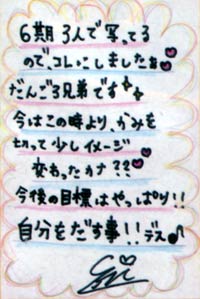 6期 3人で写ってる
ので、コレにしましたぁ
だんご3兄弟です
今はこの時より、かみを
切って少しイメージ
変わったカナ??
今後の目標はやっぱり!!
自分をだす事!!デス♪